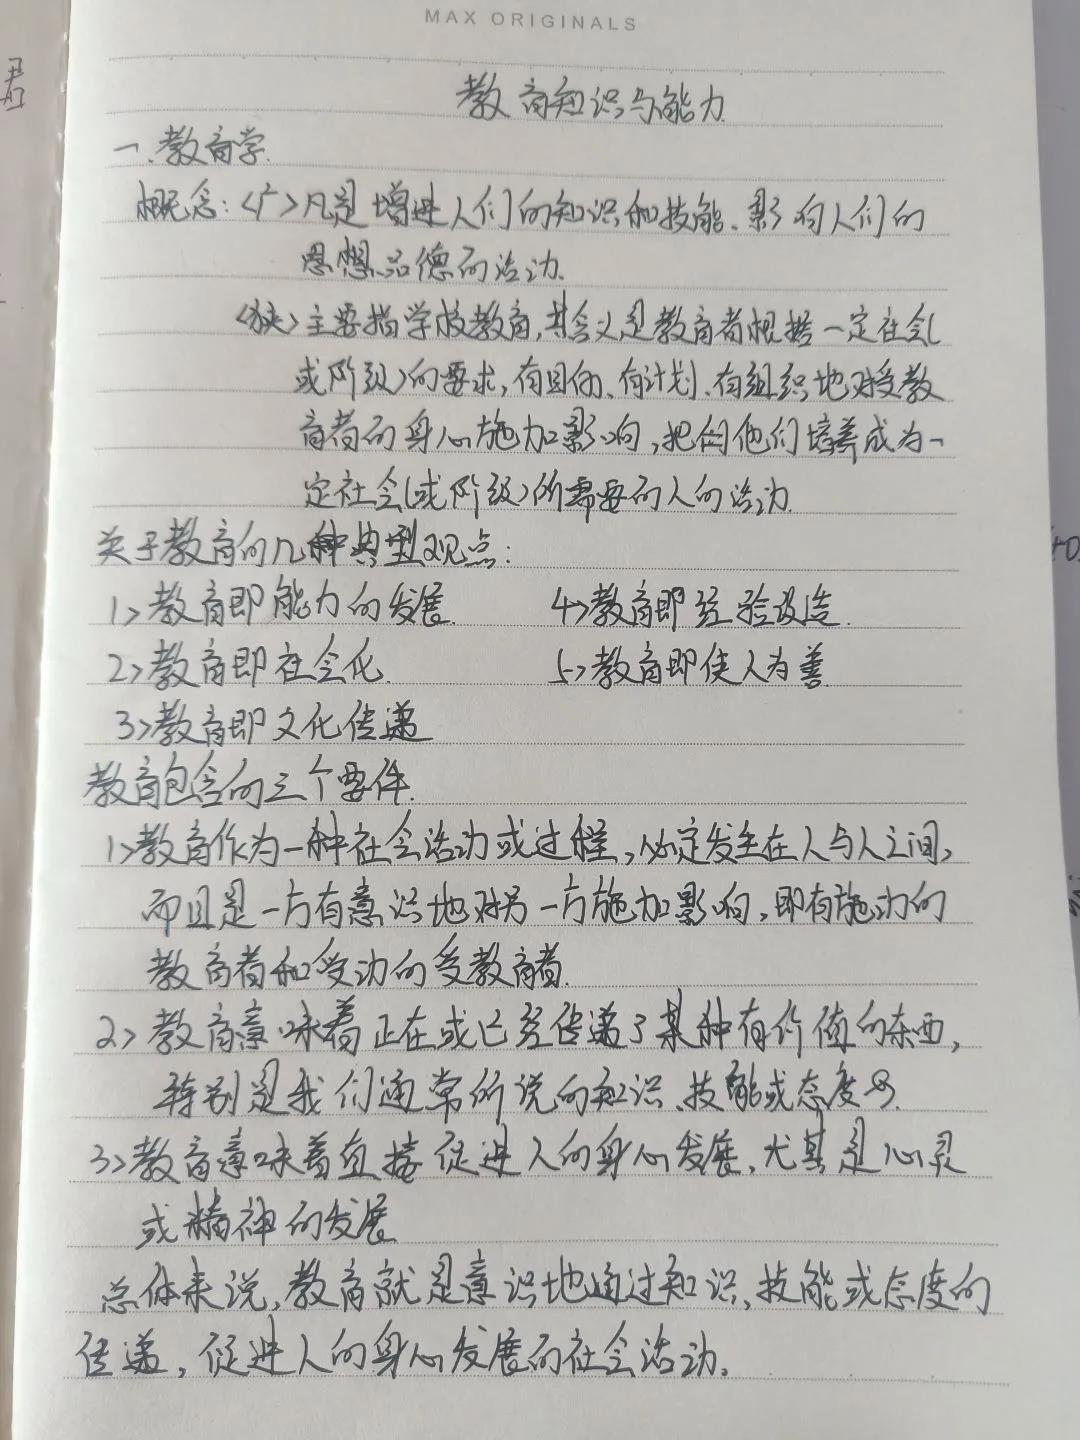 MAX ORIGINALS
教育知识与能力
一.教育学.
概念:<广>凡是增进人们的知识和技能、影响人们的
思想品德的活动.
<狭>主要指学校教育,其含义是教育者根据一定社会(
或阶级)的要求,有目的、有计划、有组织地对受教
育者的身心施加影响,把他们培养成为一
定社会(或阶级)所需要的人的活动.
关于教育的几种典型观点:
1>教育即能力的发展. 4>教育即经验改造.
2>教育即社会化. 5>教育即使人为善.
3>教育即文化传递
教育包含的三个要件.
1>教育作为一种社会活动或过程,必定发生在人与人之间,
而且是一方有意识地对另一方施加影响,即有施动的
教育者和受动的受教育者.
2>教育意味着正在或已经传递了某种有价值的东西,
特别是我们通常所说的知识、技能或态度.
3>教育意味着直接促进人的身心发展,尤其是心灵
或精神的发展
总体来说,教育就是意识地通过知识、技能或态度的
传递,促进人的身心发展的社会活动.